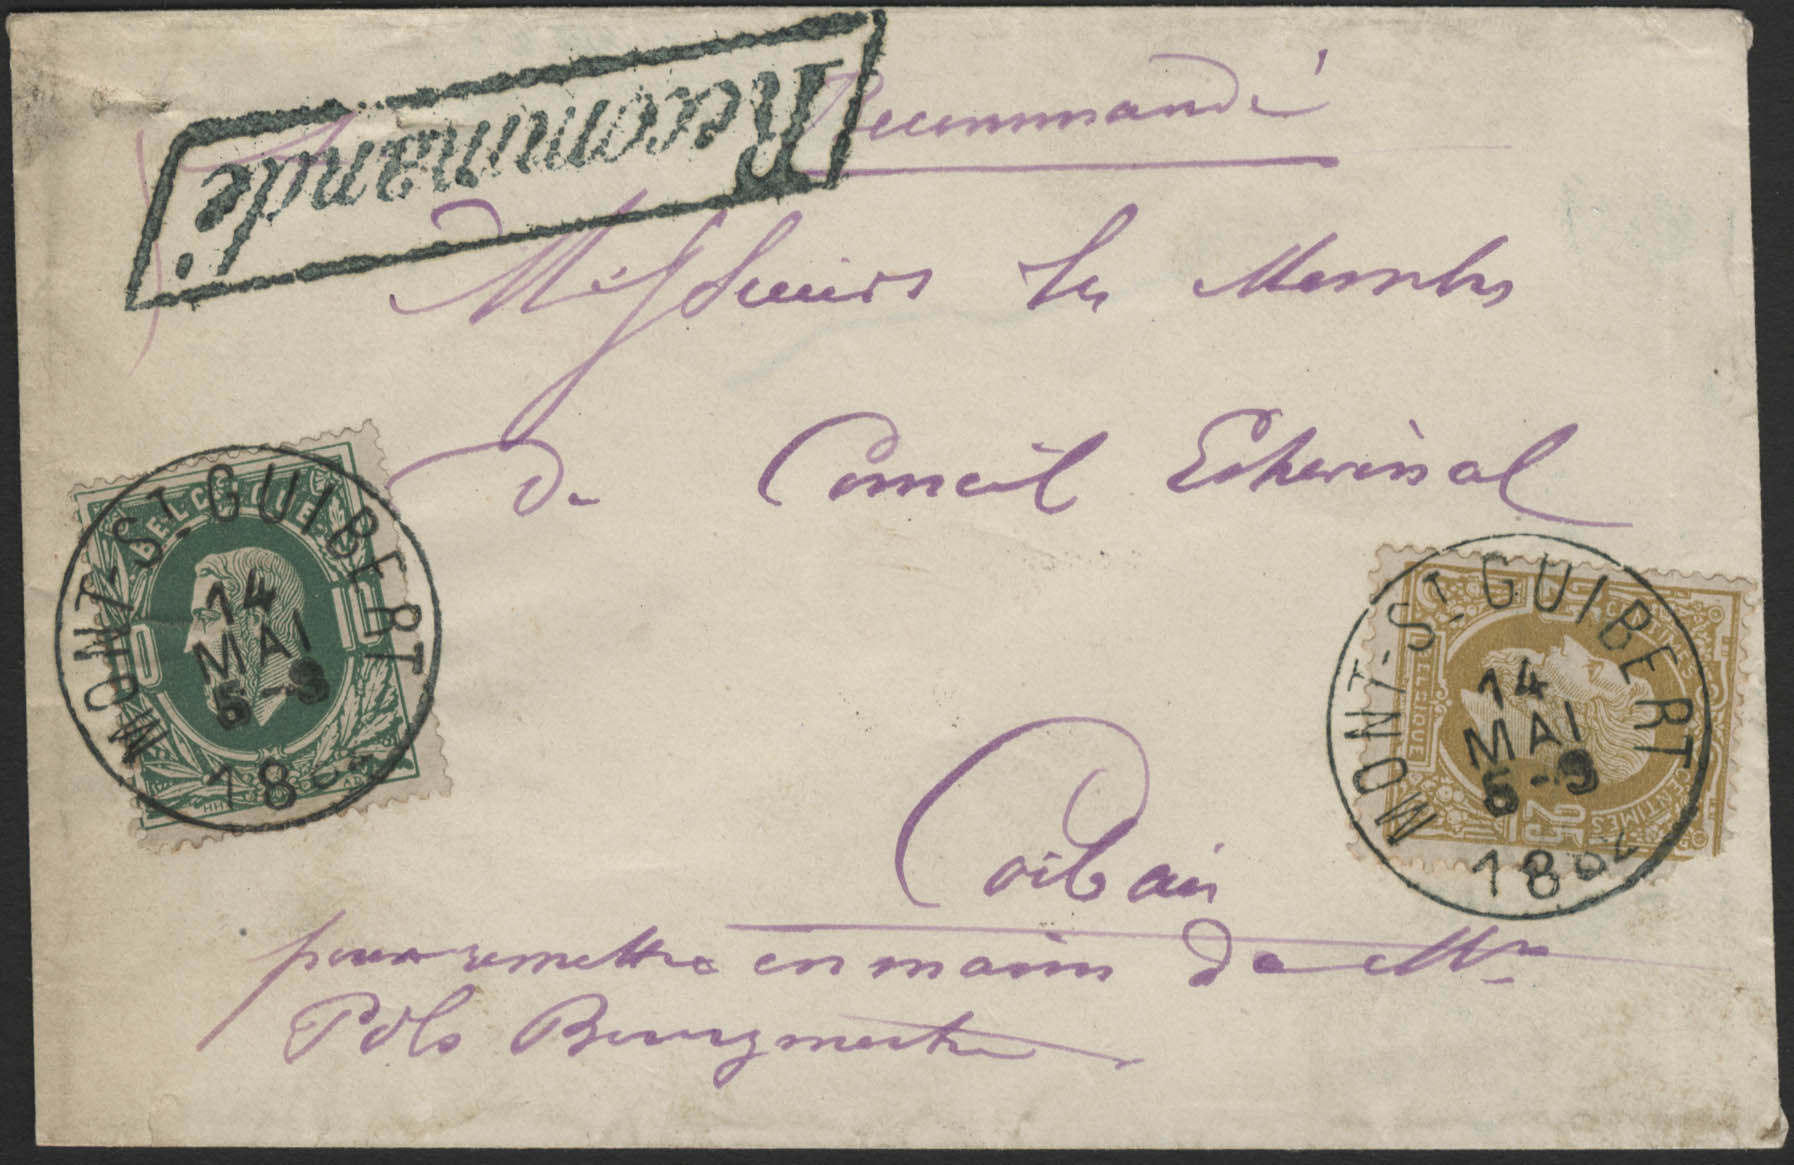 Recommandé
Recommandé
Messieurs les Membres
du Conseil Echevinal
Corbais
pour remettre en mains de Mr
Pols Bourgmestre
MONT-ST GUIBERT
14
MAI
5-S
18
BELGIQUE
10
MONT-ST GUIBERT
14
MAI
5-S
18
BELGIQUE
25
CENTIMES
CENTIMES